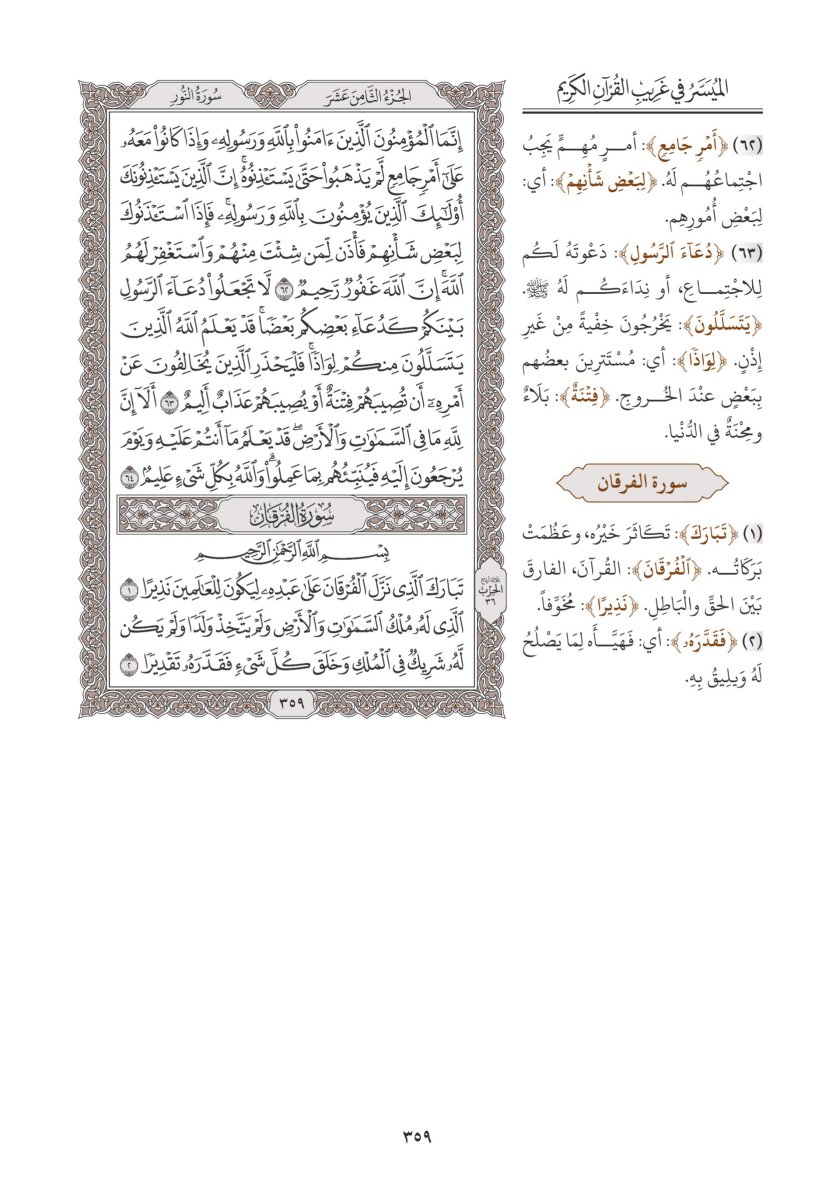 المُيَسَّرُ في غَرِيبِ القُرْآنِ الكَرِيمِ
(٦٢) ﴿أَمۡرٖ جَامِعٖ﴾: أمـرٍ مُهِـمٍّ يَجِبُ
اجْتِماعُهُـم لَهُ. ﴿لِبَعۡضِ شَأۡنِهِمۡ﴾: أي:
لِبَعْضِ أُمُورِهِم.
(٦٣) ﴿دُعَآءَ ٱلرَّسُولِ﴾: دَعْوَتَهُ لَكُم
لِلاجْتِمـاعِ، أو نِدَاءَكُـم لَهُ ﷺ.
﴿يَتَسَلَّلُونَ﴾: يَخْرُجُونَ خِفْيةً مِنْ غَيرِ
إذْنٍ. ﴿لِوَاذٗا﴾: أي: مُسْتَتِرينَ بعضُهم
بِبَعْضٍ عندَ الخُـروجِ. ﴿فِتۡنَةٌ﴾: بَلَاءٌ
ومِحْنَةٌ في الدُّنْيا.
سورة الفرقان
(١) ﴿تَبَارَكَ﴾: تَكَاثَرَ خَيْرُه، وعَظُمَتْ
بَرَكَاتُـه. ﴿ٱلۡفُرۡقَانَ﴾: القُرآنَ، الفارِقَ
بَيْنَ الحقِّ والْبَاطِلِ. ﴿نَذِيرًا﴾: مُخَوِّفاً.
(٢) ﴿فَقَدَّرَهُۥ﴾: أي: فَهَيَّـأَه لِمَا يَصْلُحُ
لَهُ وَيلِيقُ بِهِ.
الجُزْءُ الثَّامِنَ عَشَرَ
سُورَةُ النُّورِ
إِنَّمَا ٱلۡمُؤۡمِنُونَ ٱلَّذِينَ ءَامَنُواْ بِٱللَّهِ وَرَسُولِهِۦ وَإِذَا كَانُواْ مَعَهُۥ
عَلَىٰٓ أَمۡرٖ جَامِعٖ لَّمۡ يَذۡهَبُواْ حَتَّىٰ يَسۡتَـٔۡذِنُوهُۚ إِنَّ ٱلَّذِينَ يَسۡتَـٔۡذِنُونَكَ
أُوْلَٰٓئِكَ ٱلَّذِينَ يُؤۡمِنُونَ بِٱللَّهِ وَرَسُولِهِۦۚ فَإِذَا ٱسۡتَـٔۡذَنُوكَ
لِبَعۡضِ شَأۡنِهِمۡ فَأۡذَن لِّمَن شِئۡتَ مِنۡهُمۡ وَٱسۡتَغۡفِرۡ لَهُمُ
ٱللَّهَۚ إِنَّ ٱللَّهَ غَفُورٞ رَّحِيمٞ ٦٢ لَّا تَجۡعَلُواْ دُعَآءَ ٱلرَّسُولِ
بَيۡنَكُمۡ كَدُعَآءِ بَعۡضِكُم بَعۡضٗاۚ قَدۡ يَعۡلَمُ ٱللَّهُ ٱلَّذِينَ
يَتَسَلَّلُونَ مِنكُمۡ لِوَاذٗاۚ فَلۡيَحۡذَرِ ٱلَّذِينَ يُخَالِفُونَ عَنۡ
أَمۡرِهِۦٓ أَن تُصِيبَهُمۡ فِتۡنَةٌ أَوۡ يُصِيبَهُمۡ عَذَابٌ أَلِيمٌ ٦٣ أَلَآ إِنَّ
لِلَّهِ مَا فِي ٱلسَّمَٰوَٰتِ وَٱلۡأَرۡضِۖ قَدۡ يَعۡلَمُ مَآ أَنتُمۡ عَلَيۡهِ وَيَوۡمَ
يُرۡجَعُونَ إِلَيۡهِ فَيُنَبِّئُهُم بِمَا عَمِلُواْۗ وَٱللَّهُ بِكُلِّ شَيۡءٍ عَلِيمُۢ ٦٤
سُورَةُ الفُرۡقَانِ
بِسۡمِ ٱللَّهِ ٱلرَّحۡمَٰنِ ٱلرَّحِيمِ
تَبَارَكَ ٱلَّذِي نَزَّلَ ٱلۡفُرۡقَانَ عَلَىٰ عَبۡدِهِۦ لِيَكُونَ لِلۡعَٰلَمِينَ نَذِيرًا ١
ٱلَّذِي لَهُۥ مُلۡكُ ٱلسَّمَٰوَٰتِ وَٱلۡأَرۡضِ وَلَمۡ يَتَّخِذۡ وَلَدٗا وَلَمۡ يَكُن
لَّهُۥ شَرِيكٞ فِي ٱلۡمُلۡكِ وَخَلَقَ كُلَّ شَيۡءٖ فَقَدَّرَهُۥ تَقۡدِيرٗا ٢
ثلاثة أرباع
الحِزْبُ
٣٦
٣٥٩
٣٥٩